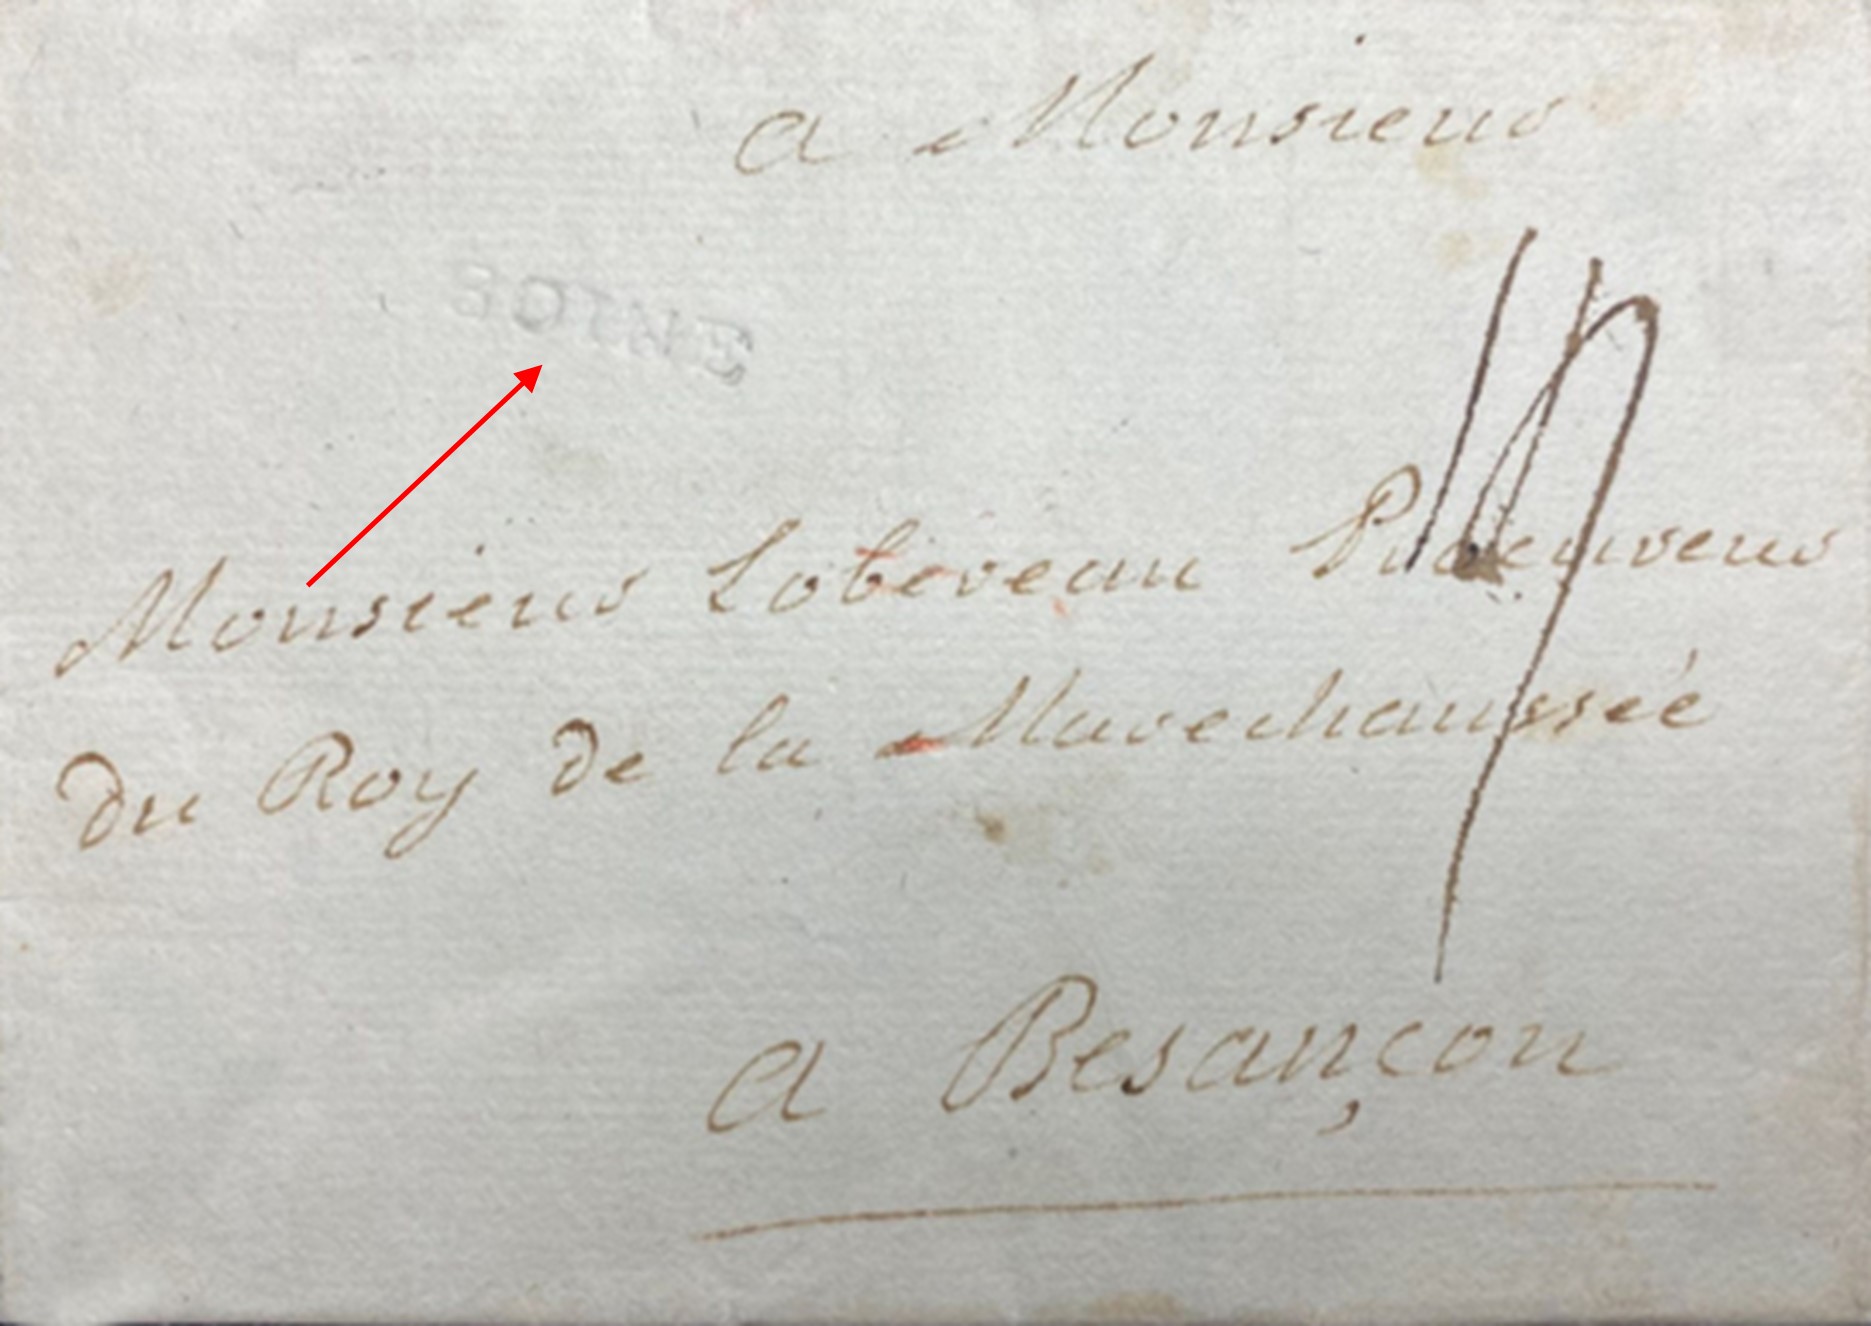 a Monsieur
Monsieur Lobereau Procureur
du Roy de la Marechaussée
a Besançon